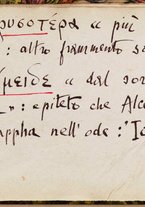 ρυσοτέρα a più
: altro frammento s
μειδε a dal sor
": epiteto che Alc
appha nell'ode: "Io